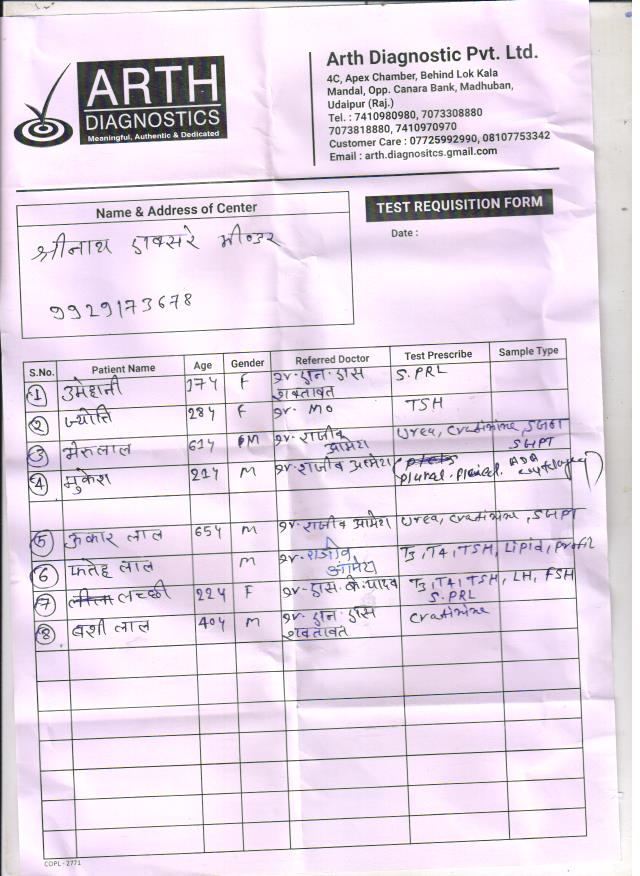 ARTH
DIAGNOSTICS
Meaningful, Authentic & Dedicated
Arth Diagnostic Pvt. Ltd.
4C, Apex Chamber, Behind Lok Kala
Mandal, Opp. Canara Bank, Madhuban,
Udaipur (Raj.)
Tel. : 7410980980, 7073308880
7073818880, 7410970970
Customer Care : 07725992990, 08107753342
Email : arth.diagnositcs.gmail.com
Name & Address of Center
श्रीनाथ
9929173678
TEST REQUISITION FORM
Date :
S.No. Patient Name Age Gender Referred Doctor Test Prescribe Sample Type
1 17Y F S. PRL
2 ज्योति 28Y F Mo TSH
3 भेरुलाल 61Y M राजीव आमेरा Urea, Cratinine,
SGPT
4 मुकेश 21Y M राजीव आमेरा ADA
5 ऊकार लाल 65Y M राजीव आमेरा Urea, Cratinine, SGPT
6 फतेह लाल M राजीव T3, T4, TSH, Lipid, Profil
आमेरा
7 लच्छी 22Y F T3, T4, TSH, LH, FSH
S. PRL
8 बंशी लाल 40Y M Cratinine
COPL - 2771